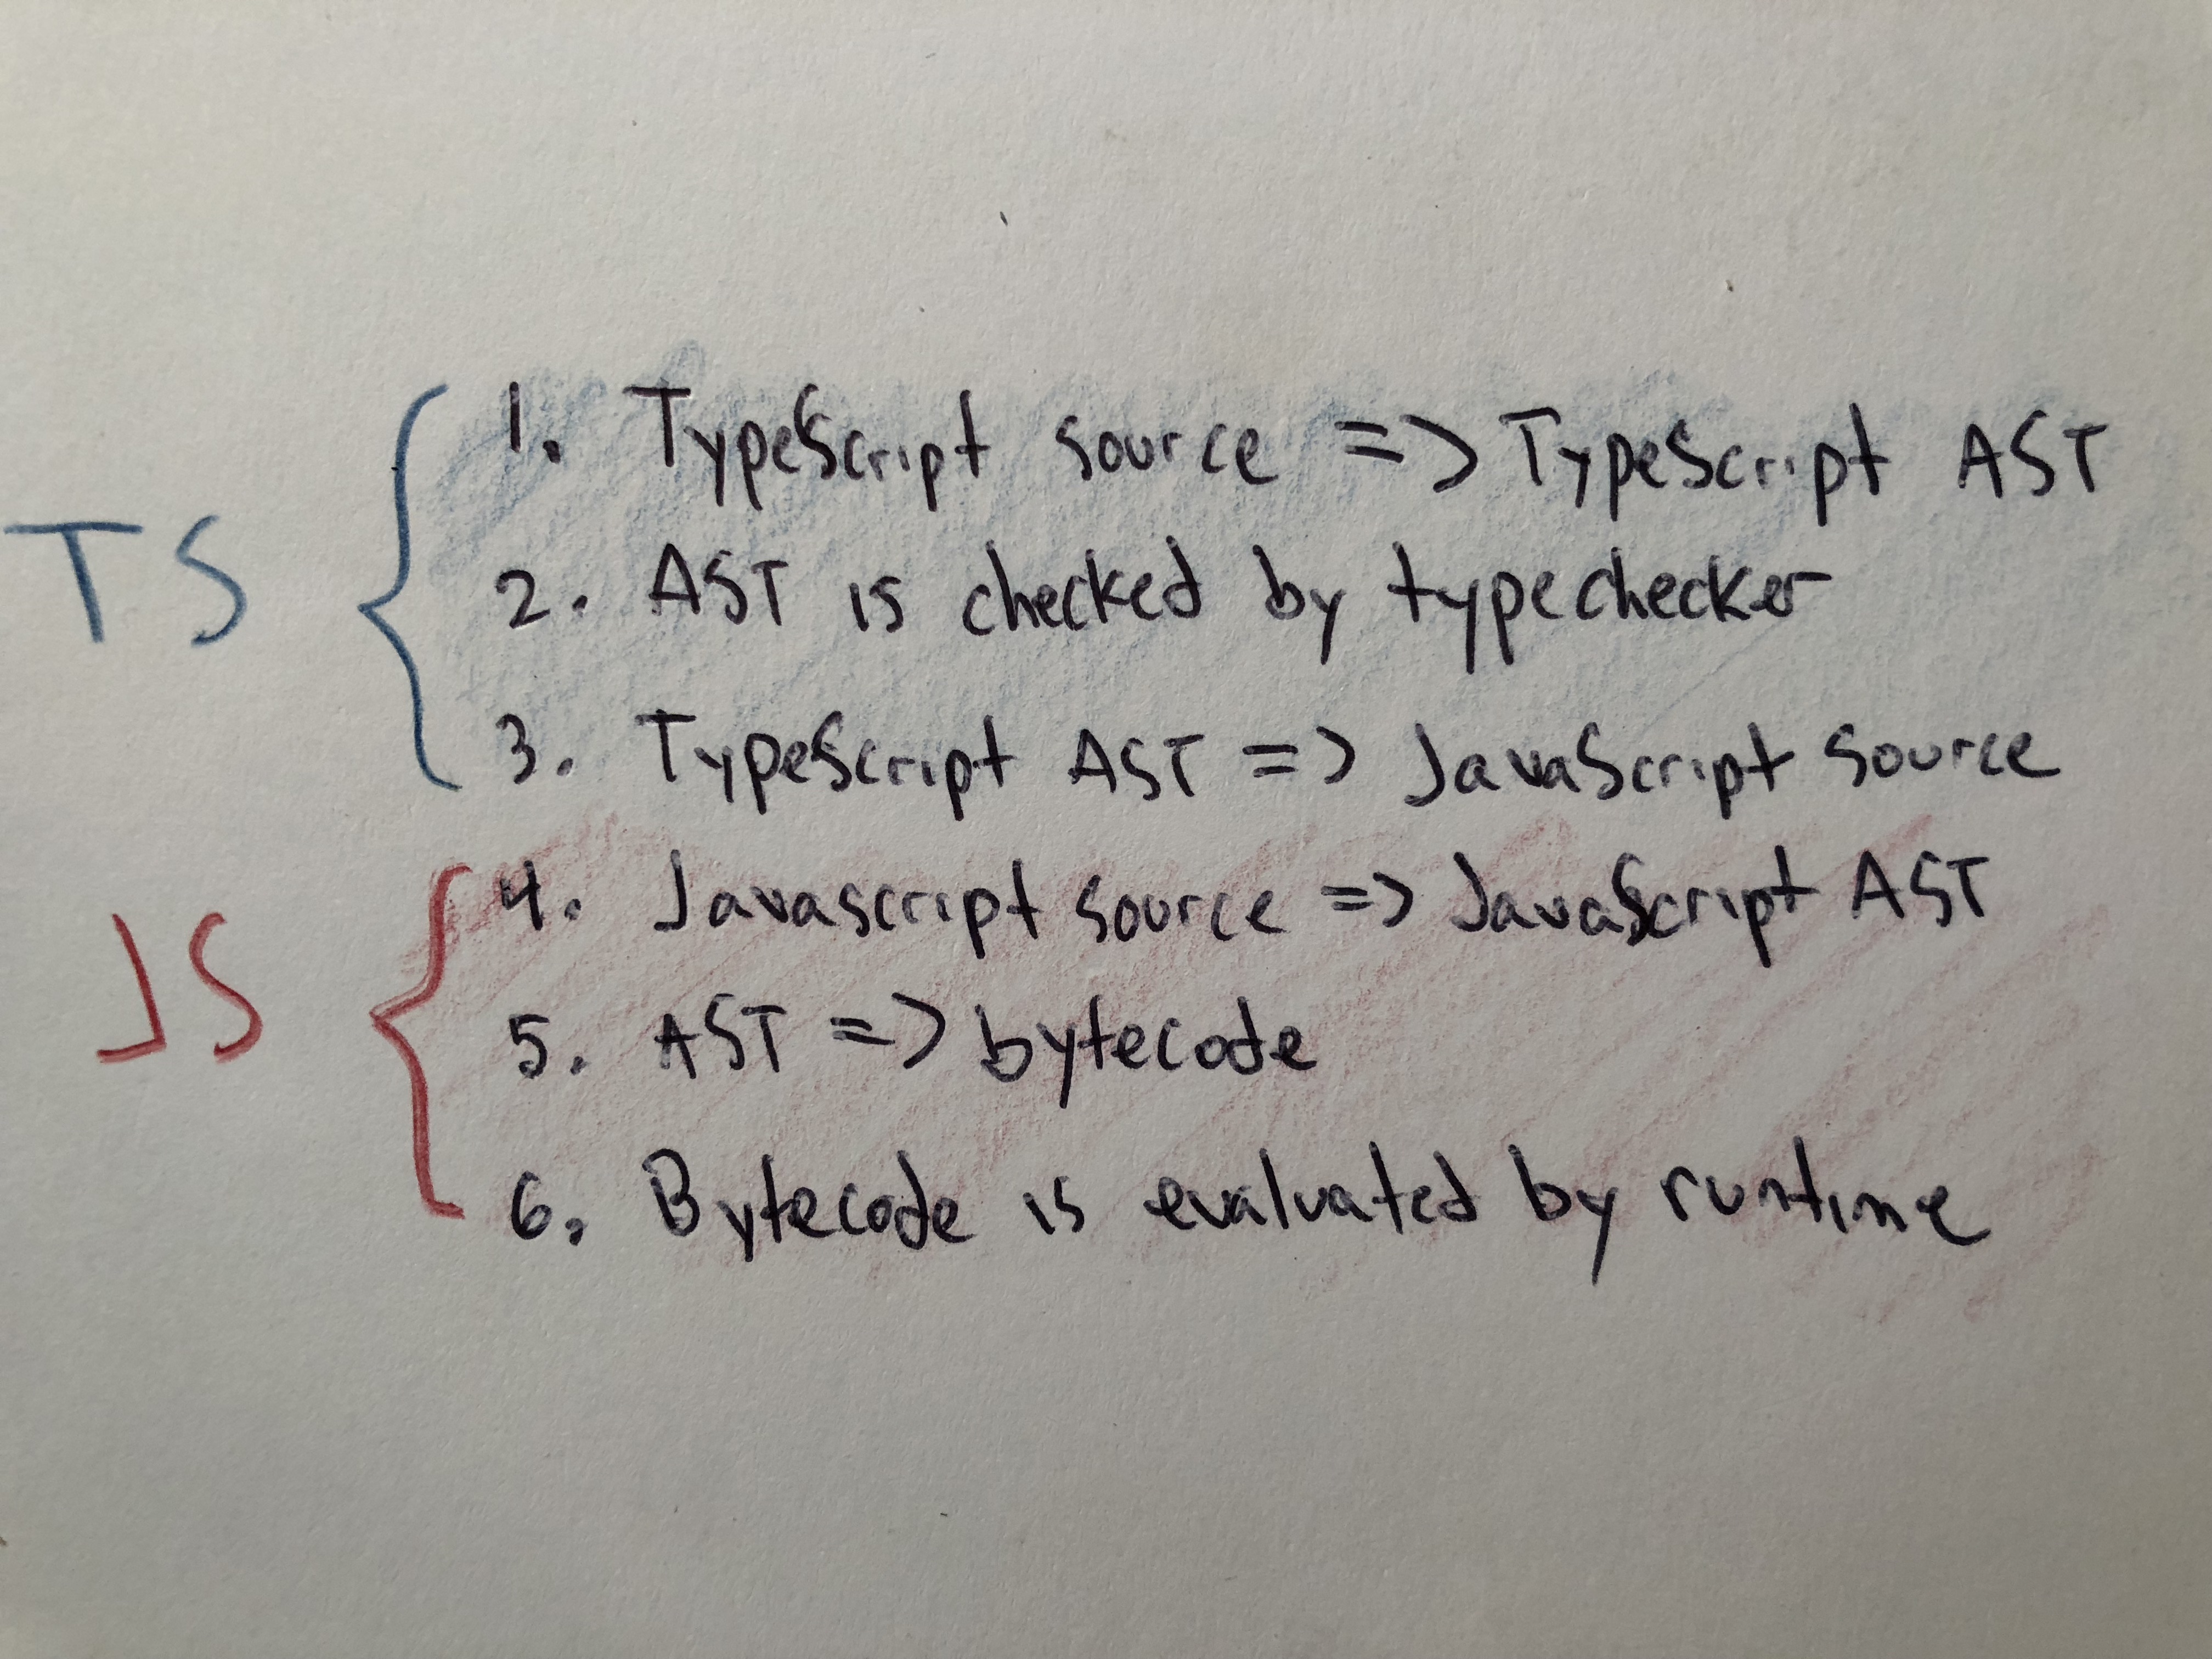 TS
1. TypeScript source => TypeScript AST
2. AST is checked by typechecker
3. TypeScript AST => JavaScript source
JS
4. Javascript source => JavaScript AST
5. AST => bytecode
6. Bytecode is evaluated by runtime